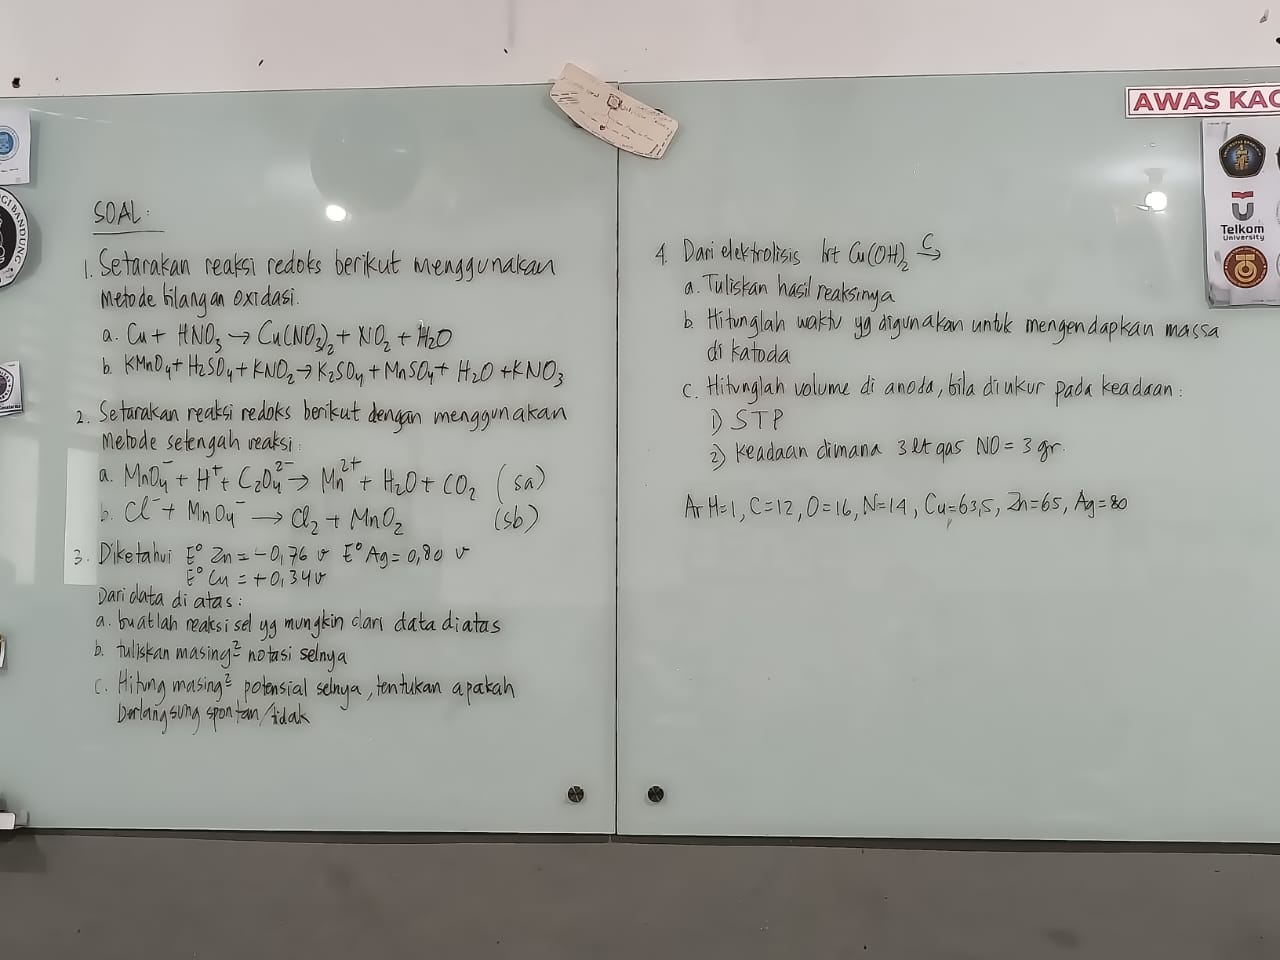 AWAS KAC
GI BANDUNG
Telkom
University
SOAL:
1. Setarakan reaksi redoks berikut menggunakan
metode bilangan oxidasi.
a. Cu + HNO₃ → Cu(NO₃)₂ + NO₂ + H₂O
b. KMnO₄ + H₂SO₄ + KNO₂ → K₂SO₄ + MnSO₄ + H₂O + KNO₃
2. Setarakan reaksi redoks berikut dengan menggunakan
metode setengah reaksi:
a. MnO₄⁻ + H⁺ + C₂O₄²⁻ → Mn²⁺ + H₂O + CO₂ (sa)
b. Cl⁻ + MnO₄⁻ → Cl₂ + MnO₂ (sb)
3. Diketahui E° Zn = -0,76 v E° Ag = 0,80 v
E° Cu = +0,34 v
Dari data di atas:
a. buatlah reaksi sel yg mungkin dari data diatas
b. tuliskan masing² notasi selnya
c. Hitung masing² potensial selnya, tentukan apakah
berlangsung spontan/tidak
4. Dari elektrolisis lrt Cu(OH)₂ C→
a. Tuliskan hasil reaksinya
b. Hitunglah waktu yg digunakan untuk mengendapkan massa
di katoda
c. Hitunglah volume di anoda, bila diukur pada keadaan:
1) STP
2) keadaan dimana 3 lt gas NO = 3 gr.
Ar H=1, C=12, O=16, N=14, Cu=63,5, Zn=65, Ag=80